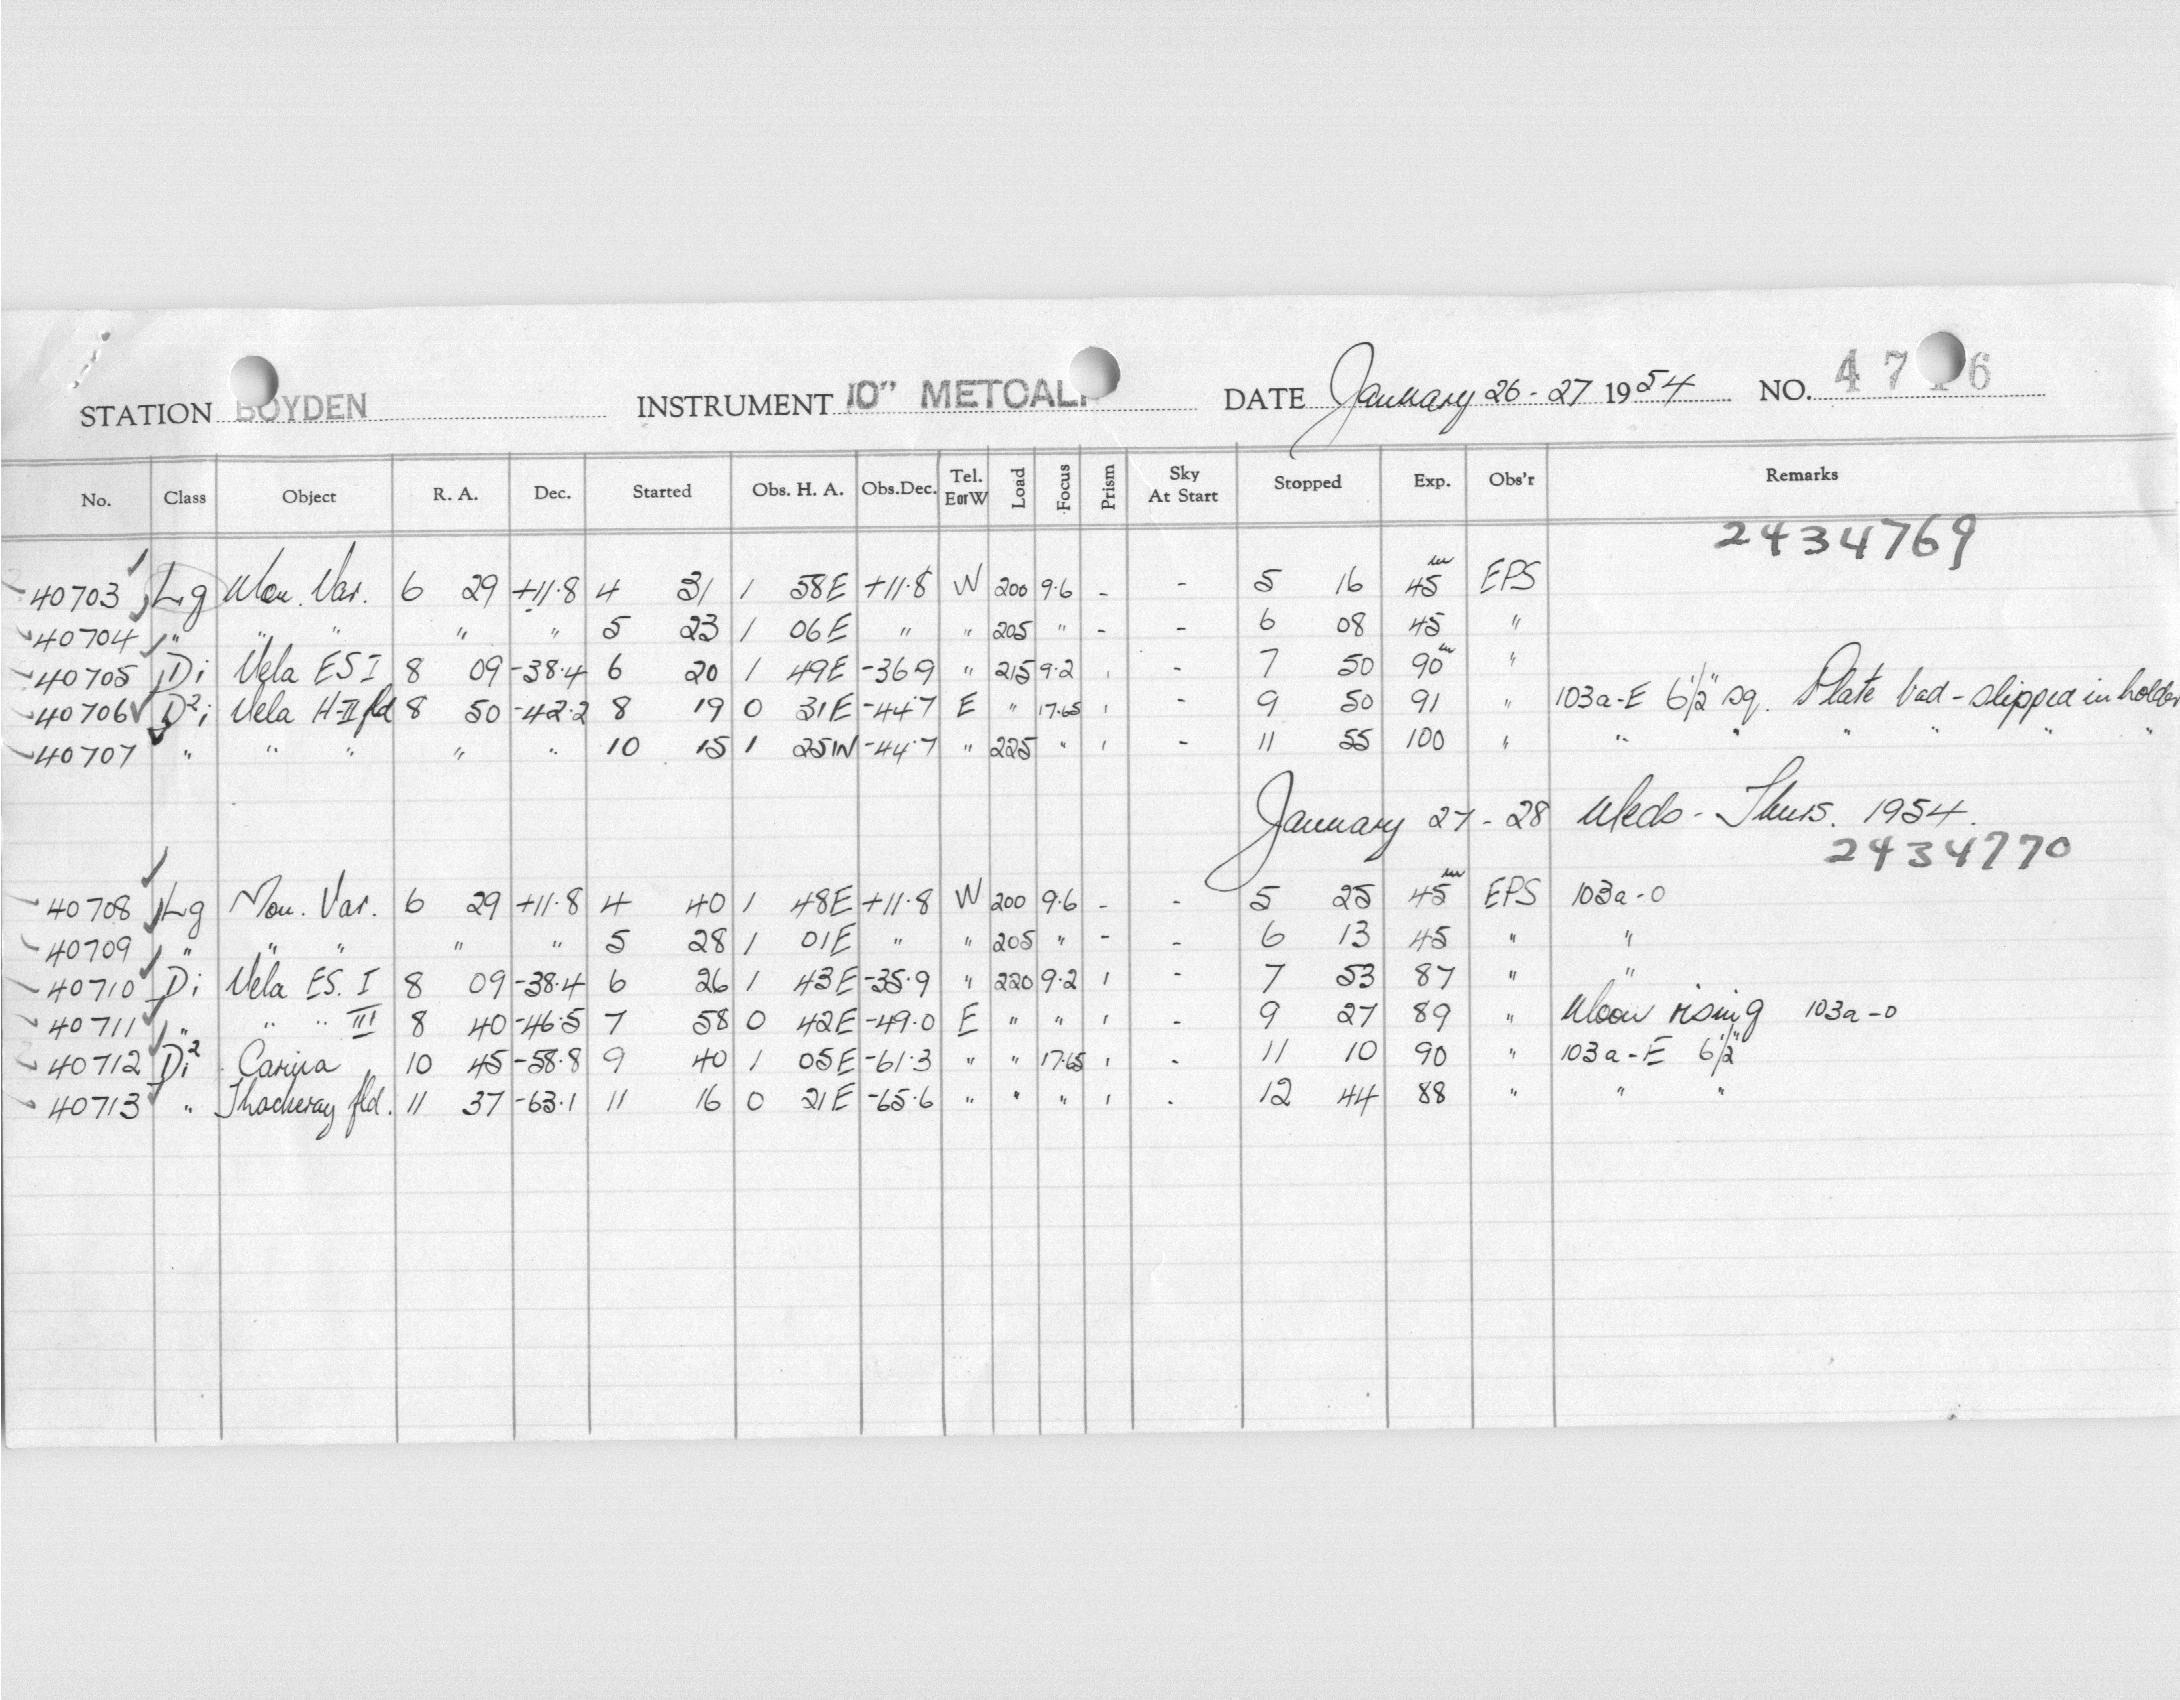 STATION BOYDEN INSTRUMENT 10" METCALF DATE January 26-27 1954 NO. 47 6
No. Class Object R. A. Dec. Started Obs. H. A. Obs.Dec. Tel. E or W Load Focus Prism Sky At Start Stopped Exp. Obs'r Remarks
2434769
40703 Lg Mon. Var. 6 29 +11.8 4 31 1 58E +11.8 W 200 9.6 - - 5 16 45m EPS
40704 " " " " " 5 23 1 06E " " 205 " - - 6 08 45 "
40705 Di Vela ES I 8 09 -38.4 6 20 1 49E -36.9 " 215 9.2 1 - 7 50 90m "
40706 D²i Vela H-II fld 8 50 -42.2 8 19 0 31E -44.7 E " 17.65 1 - 9 50 91 " 103a-E 6½" sq. Plate bad - slipped in holder
40707 " " " " " 10 15 1 25W -44.7 " 225 " 1 - 11 55 100 " " " " " " "
January 27-28 Weds - Thurs. 1954.
2434770
40708 Lg Mon. Var. 6 29 +11.8 4 40 1 48E +11.8 W 200 9.6 - - 5 25 45m EPS 103a-O
40709 " " " " " 5 28 1 01E " " 205 " - - 6 13 45 " "
40710 Di Vela ES. I 8 09 -38.4 6 26 1 43E -35.9 " 220 9.2 1 - 7 53 87 " "
40711 " " " III 8 40 -46.5 7 58 0 42E -49.0 E " " 1 - 9 27 89 " Moon rising 103a-O
40712 Di² Carina 10 45 -58.8 9 40 1 05E -61.3 " " 17.65 1 - 11 10 90 " 103a-E 6½"
40713 " Thackeray fld. 11 37 -63.1 11 16 0 21E -65.6 " " " 1 - 12 44 88 " " "